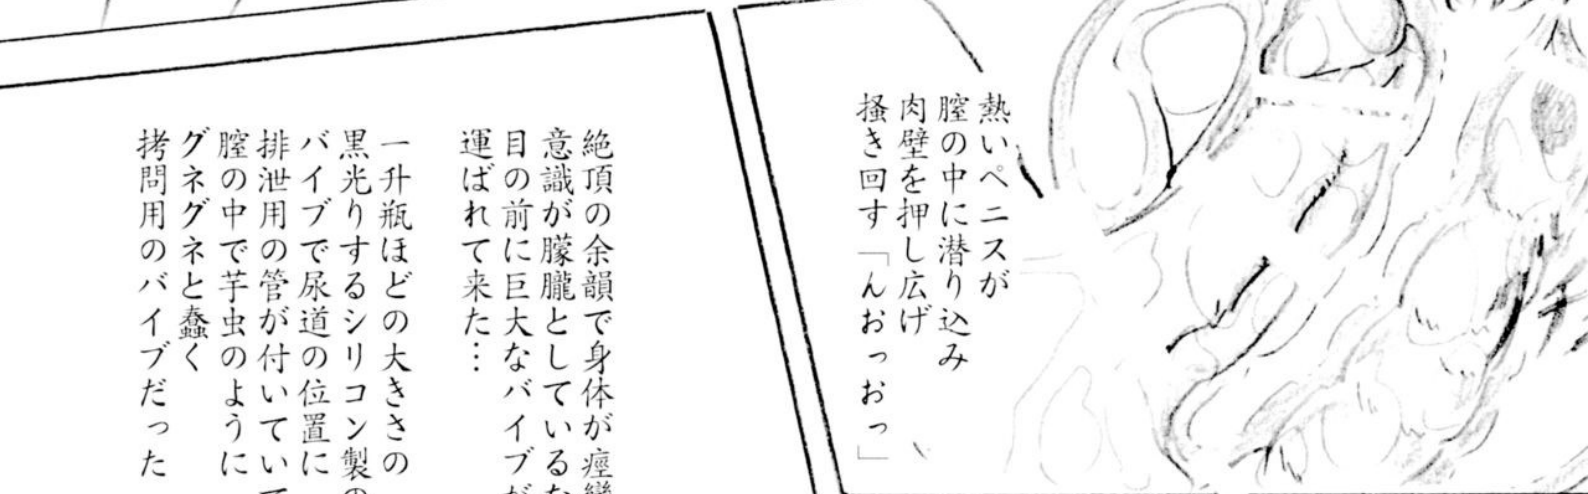 熱いペニスが
膣の中に潜り込み
肉壁を押し広げ
掻き回す「んおっおっ」
絶頂の余韻で身体が痙攣
意識が朦朧としているな
目の前に巨大なバイブが
運ばれて来た…
一升瓶ほどの大きさの
黒光りするシリコン製の
バイブで尿道の位置に
排泄用の管が付いていて
膣の中で芋虫のように
グネグネと蠢く
拷問用のバイブだった